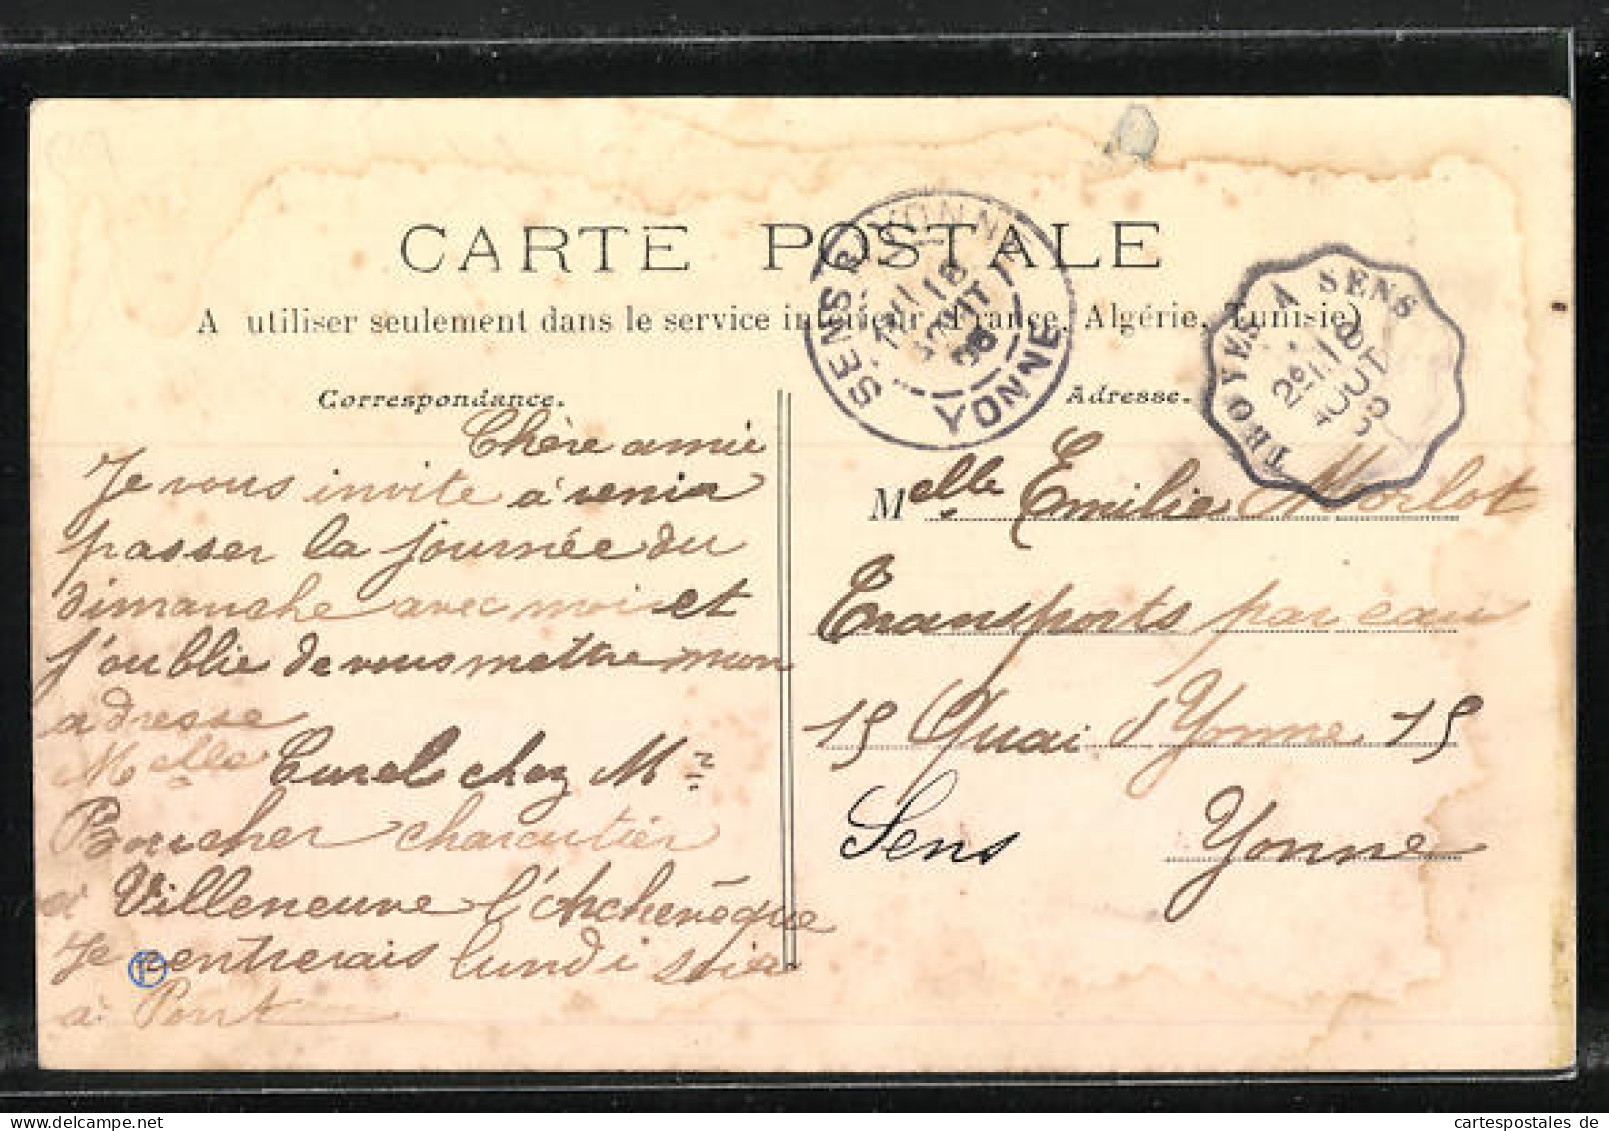 CARTE POSTALE
A utiliser seulement dans le service intérieur (France, Algérie, Tunisie)
Correspondance.
Chère amie
Je vous invite à venir
passer la journée du
dimanche avec moi et
j'oublie de vous mettre mon
adresse
Melle Curel chez Mr
Boucher charcutier
à Villeneuve l'Archevêque
Je rentrerais lundi soir
à Pont
Adresse.
Melle Emilie Morlot
Transports par eau
15 Quai d'Yonne 15
Sens Yonne
SENS S YONNE
18
AOUT
08
YONNE
TROYES A SENS
2º
18
AOUT
08
cartespostales de